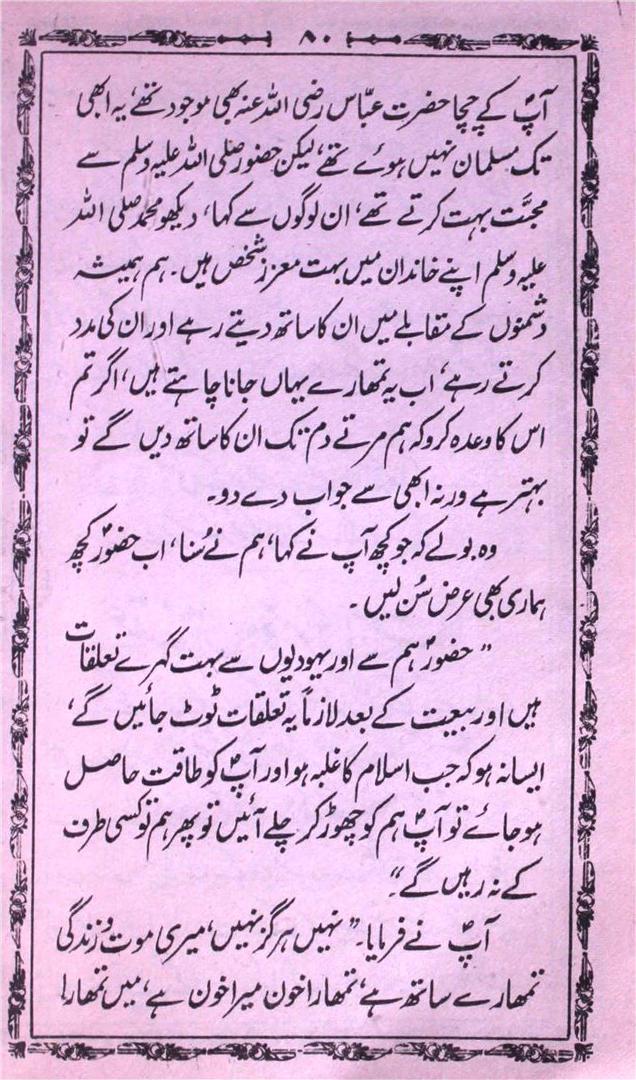 ۸۰
آپؐ کے چچا حضرت عبّاس رضی اللہ عنہ بھی موجود تھے، یہ ابھی
تک مسلمان نہیں ہوئے تھے، لیکن حضور صلی اللہ علیہ وسلم سے
محبّت بہت کرتے تھے، ان لوگوں سے کہا، دیکھو محمد صلی اللہ
علیہ وسلم اپنے خاندان میں بہت معزز شخص ہیں۔ ہم ہمیشہ
دشمنوں کے مقابلے میں ان کا ساتھ دیتے رہے اور ان کی مدد
کرتے رہے، اب یہ تمھارے یہاں جانا چاہتے ہیں، اگر تم
اس کا وعدہ کرو کہ ہم مرتے دم تک ان کا ساتھ دیں گے تو
بہتر ہے ورنہ ابھی سے جواب دے دو۔
وہ بولے کہ جو کچھ آپ نے کہا، ہم نے سُنا، اب حضورؐ کچھ
ہماری بھی عرض سُن لیں۔
”حضورؐ ہم سے اور یہودیوں سے بہت گہرے تعلقات
ہیں اور بیعت کے بعد لازماً یہ تعلقات ٹوٹ جائیں گے،
ایسا نہ ہو کہ جب اسلام کا غلبہ ہو اور آپؐ کو طاقت حاصل
ہو جائے تو آپؐ ہم کو چھوڑ کر چلے آئیں تو پھر ہم تو کسی طرف
کے نہ رہیں گے“
آپؐ نے فرمایا۔ ”نہیں ہرگز نہیں، میری موت و زندگی
تمھارے ساتھ ہے، تمھارا خون میرا خون ہے، میں تمھارا